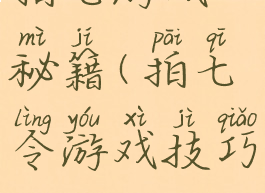 mì jí pāi qī
秘籍(拍七
lìng yóu xì jì qiǎo
令游戏技巧